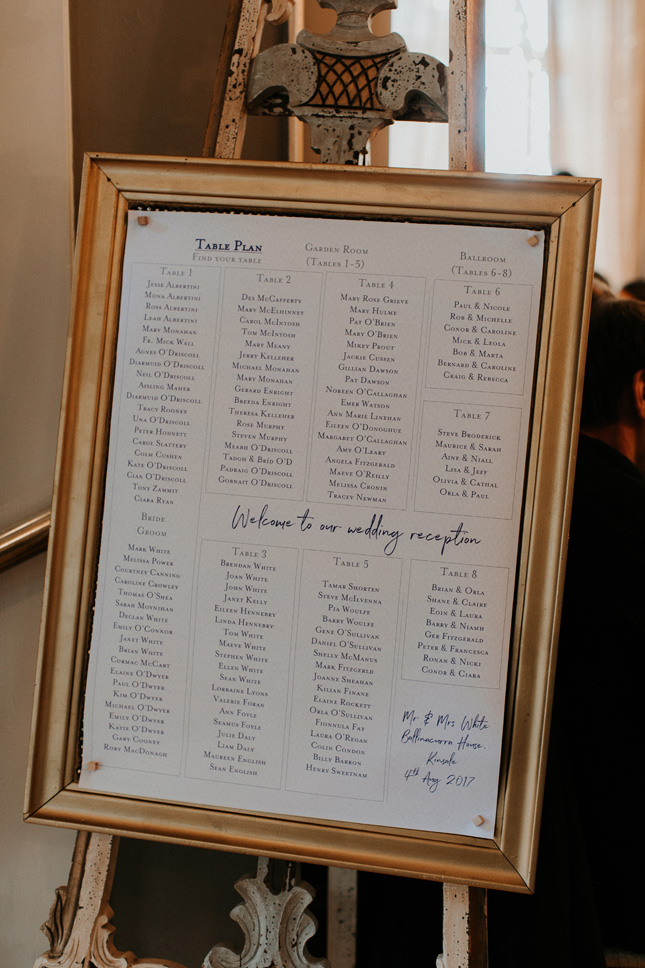 Table Plan
Find your table
Garden Room
(Tables 1-5)
Ballroom
(Tables 6-8)
Table 1
Jesse Albertini
Mona Albertini
Ross Albertini
Leah Albertini
Mary Monahan
Fr. Mick Wall
Agnes O'Driscoll
Diarmuid O'Driscoll
Neil O'Driscoll
Aisling Maher
Diarmuid O'Driscoll
Tracy Rooney
Una O'Driscoll
Peter Hodnett
Carol Slattery
Colm Cushen
Kate O'Driscoll
Cian O'Driscoll
Tony Zammit
Ciara Ryan
Bride
Groom
Mark White
Melissa Power
Courtney Canning
Caroline Crowley
Thomas O'Shea
Sarah Moynihan
Declan White
Emily O'Connor
Janet White
Brian White
Cormac McCart
Elaine O'Dwyer
Paul O'Dwyer
Kim O'Dwyer
Michael O'Dwyer
Emily O'Dwyer
Katie O'Dwyer
Gary Cooney
Rory MacDonagh
Table 2
Des McCafferty
Mary McElhinney
Carol McIntosh
Tom McIntosh
Mary Meany
Jerry Kelleher
Michael Monahan
Mary Monahan
Gerard Enright
Breeda Enright
Theresa Kelleher
Rose Murphy
Steven Murphy
Meabh O'Driscoll
Tadgh & Bríd O'D
Padraig O'Driscoll
Gobnait O'Driscoll
Table 4
Mary Rose Grieve
Mary Hulme
Pat O'Brien
Mary O'Brien
Mikey Prout
Jackie Cussen
Gillian Dawson
Pat Dawson
Noreen O'Callaghan
Emer Watson
Ann Marie Linehan
Eileen O'Donoghue
Margaret O'Callaghan
Amy O'Leary
Angela Fitzgerald
Maeve O'Reilly
Melissa Cronin
Tracey Newman
Table 6
Paul & Nicole
Rob & Michelle
Conor & Caroline
Mick & Leola
Bob & Marta
Bernard & Caroline
Craig & Rebecca
Table 7
Steve Broderick
Maurice & Sarah
Aine & Niall
Lisa & Jeff
Olivia & Cathal
Orla & Paul
Welcome to our wedding reception
Table 3
Brendan White
Joan White
John White
Janet Kelly
Eileen Hennebry
Linda Hennebry
Tom White
Maeve White
Stephen White
Ellen White
Sean White
Lorraine Lyons
Valerie Foran
Ann Foyle
Seamus Foyle
Julie Daly
Liam Daly
Maureen English
Sean English
Table 5
Tamar Shorten
Steve McIlvenna
Pia Woulfe
Barry Woulfe
Gene O'Sullivan
Daniel O'Sullivan
Shelly McManus
Mark Fitzgerld
Joanne Sheahan
Kilian Finane
Elaine Rockett
Orla O'Sullivan
Fionnula Fay
Laura O'Regan
Colin Condon
Billy Barron
Henry Sweetnam
Table 8
Brian & Orla
Shane & Claire
Eoin & Laura
Barry & Niamh
Ger Fitzgerald
Peter & Francesca
Ronan & Nicki
Conor & Ciara
Mr & Mrs White
Ballinacurra House.
Kinsale
4th Aug 2017